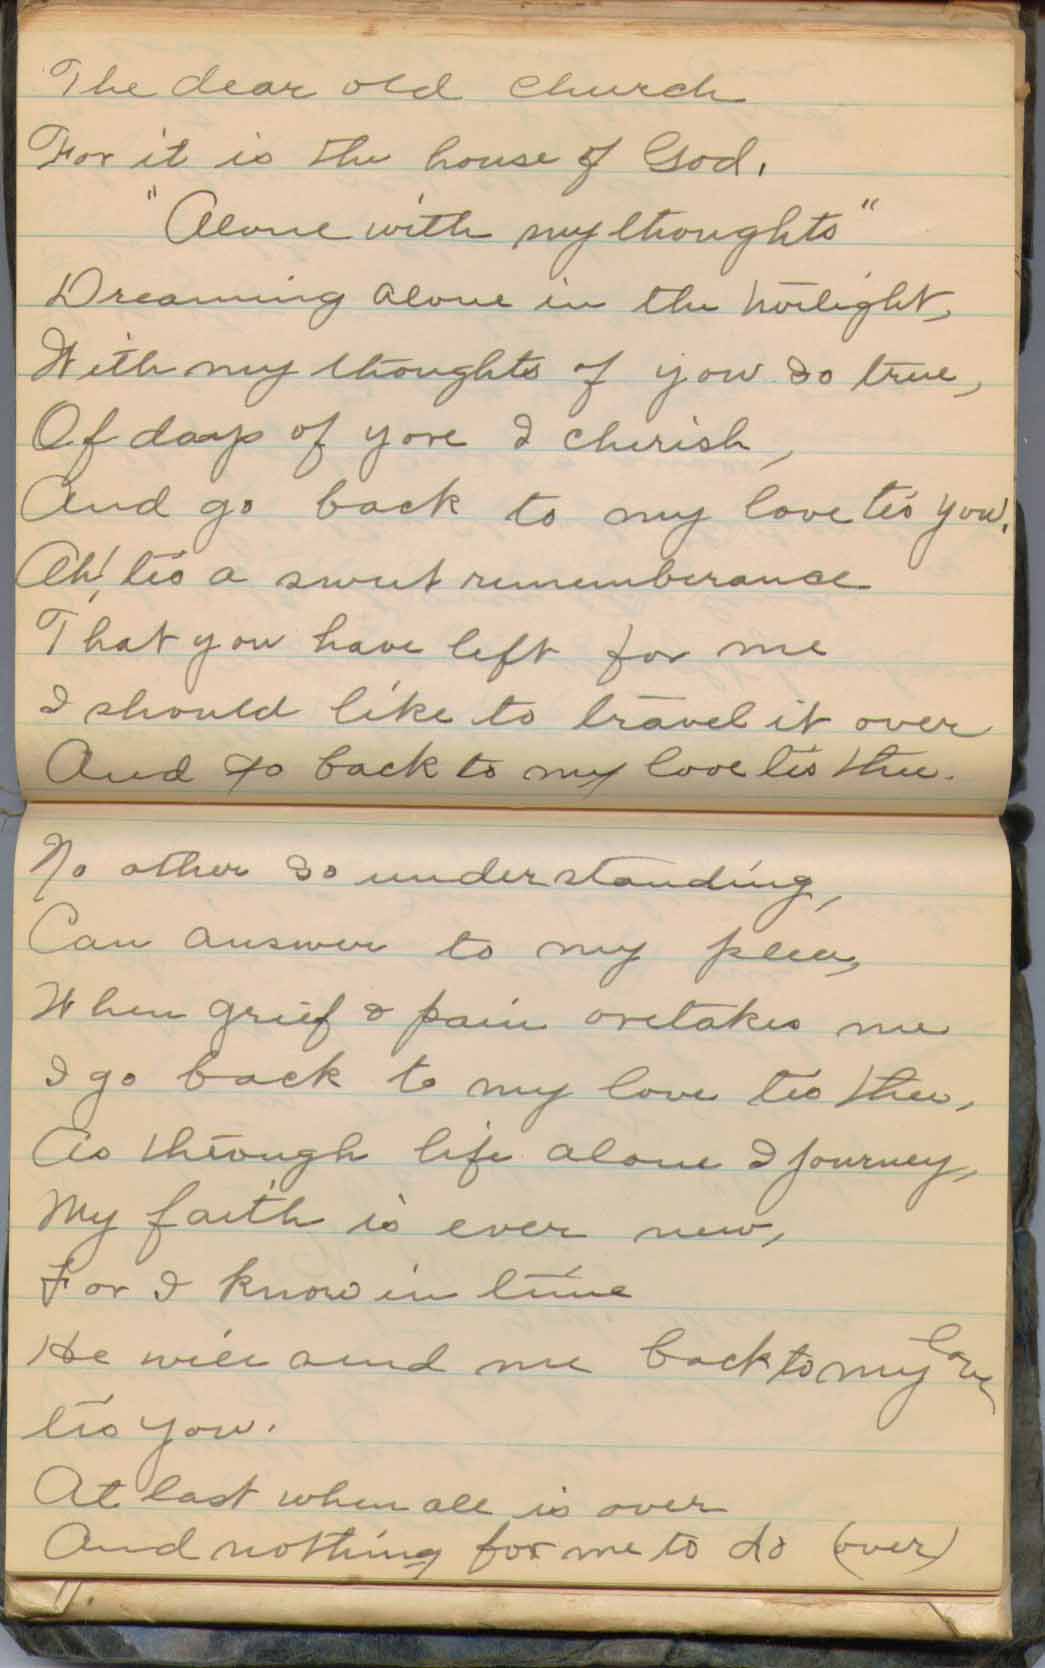 The dear old church
For it is the house of God.
"Alone with my thoughts"
Dreaming alone in the twilight,
With my thoughts of you so true,
Of days of yore I cherish,
And go back to my love tis you.
Ah! tis a sweet rememberance
That you have left for me
I should like to travel it over
And go back to my love tis thee.
No other so understanding,
Can answer to my plea,
When grief & pain oretakes me
I go back to my love tis thee,
As through life alone I journey,
My faith is ever new,
For I know in time
He will send me back to my love
tis you.
At last when all is over
And nothing for me to do (over)